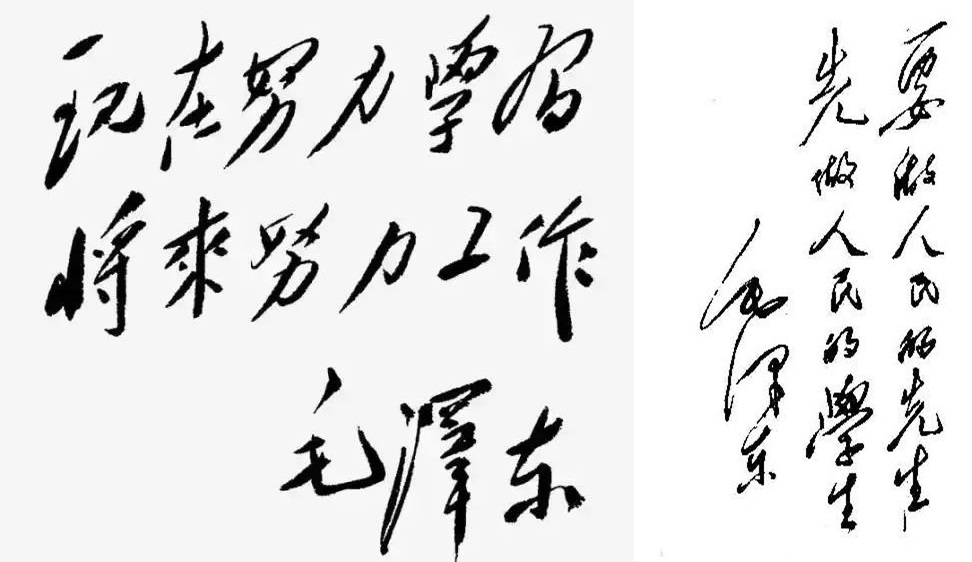 现在努力學習
将來努力工作
毛澤东
要做人民的先生
先做人民的學生
毛泽东